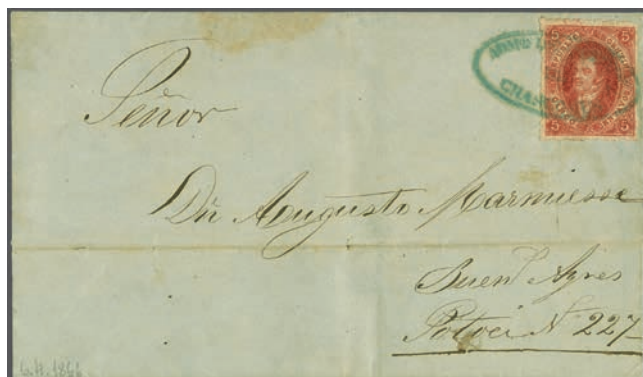 5 5
CHAS
5 5
Señor
Dn Augusto Marmiesse
Buens Ayres
Potoci No 227